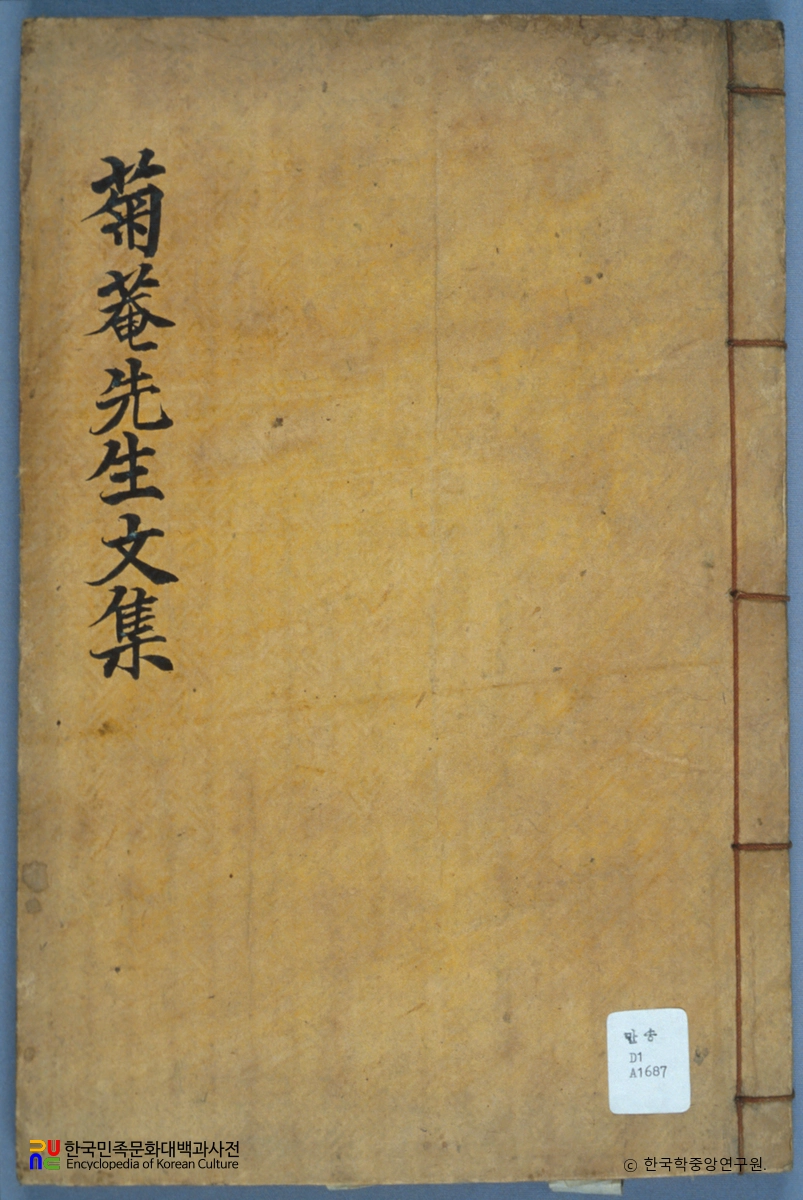 菊菴先生文集
만송
D1
A1687
한국민족문화대백과사전
Encyclopedia of Korean Culture
© 한국학중앙연구원.